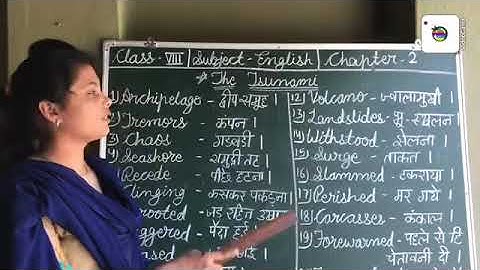 Class- VIII Subject- English Chapter- 2
* The Tsunami
1) Archipelage - द्वीप समूह ।
2) Tremors - कंपन ।
3) Chaos - गडबडी ।
4) Seashore - समुद्री तट ।
5) Recede - पीछे हटना ।
Clinging - कसकर पकड़ना ।
rooted - जड़ सहित
ggered - पैदा हुई
ased
12) Volcano - ज्वालामुखी ।
13) Landslides - भू-स्खलन ।
14) Withstood - झेलना ।
15) Surge - ताकत ।
16) Slammed - टकराया ।
17) Perished - मर गये ।
18) Carcasses - कंकाल ।
19) Forewarned - पहले से ही
चेतावनी दी ।